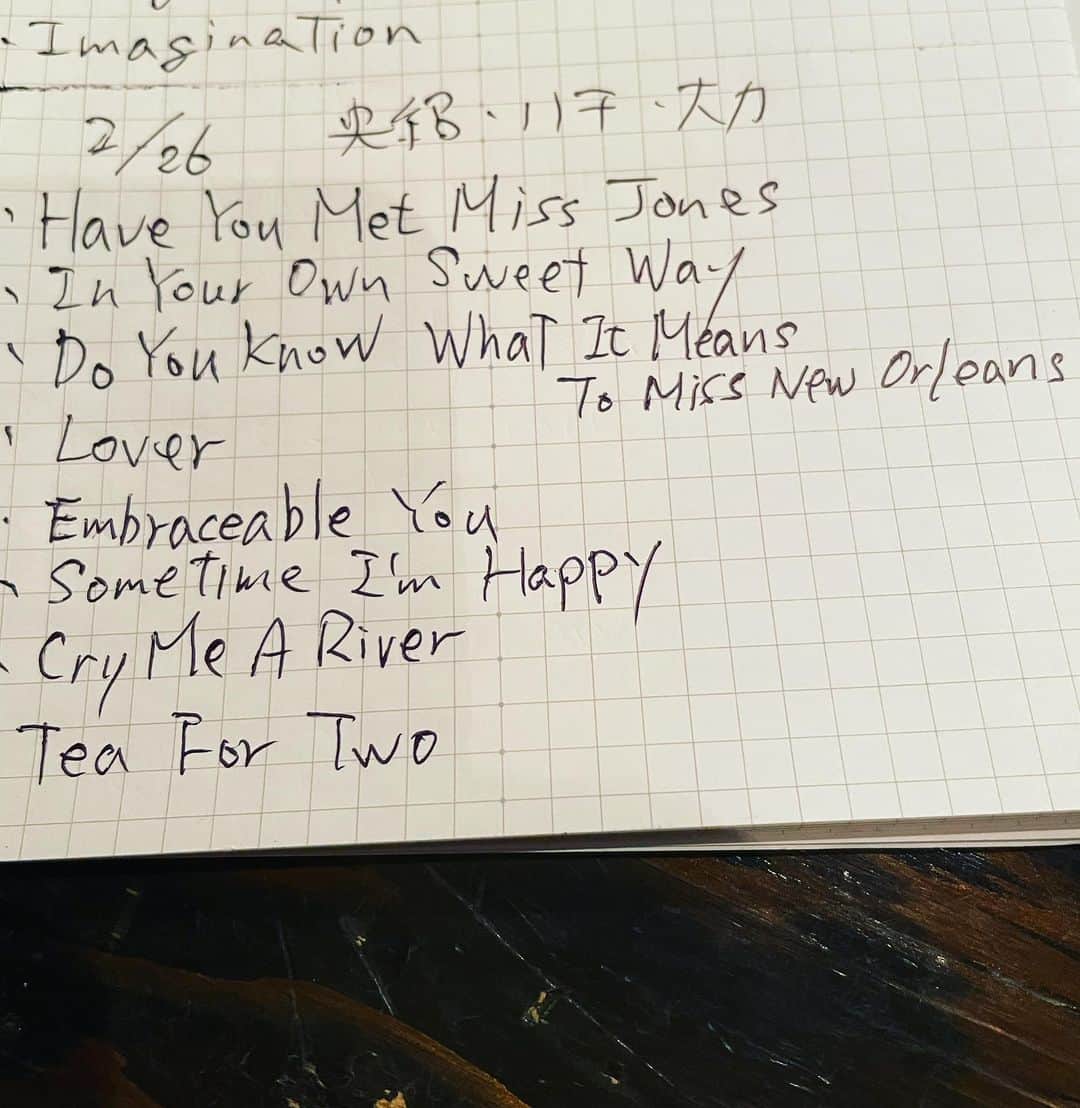 · Imagination
2/26 央紹・川干・大力
· Have You Met Miss Jones
· In Your Own Sweet Way
· Do You Know What It Means
To Miss New Orleans
· Lover
· Embraceable You
· Sometime I'm Happy
· Cry Me A River
Tea For Two